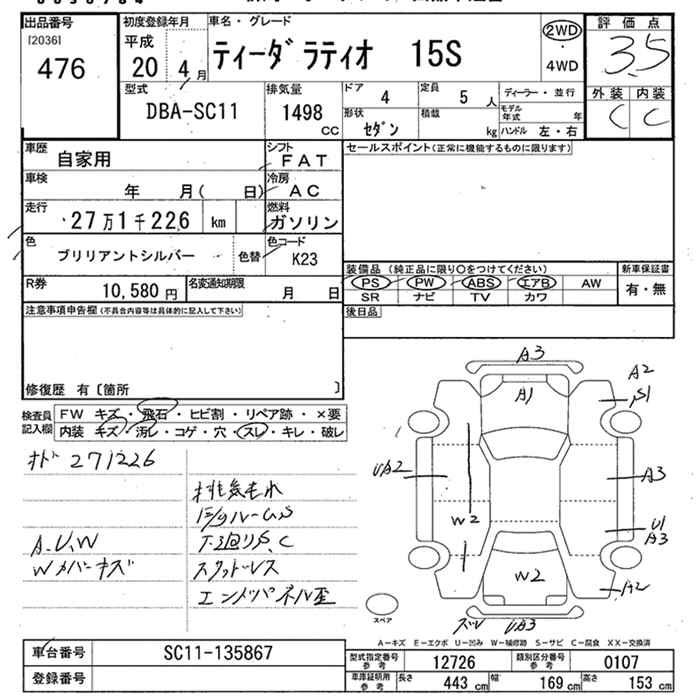 出品番号
[2036]
476
初度登録年月
平成
20 4 月
車名・グレード
ティーダ ラティオ 15S
2WD
・
4WD
評価点
3.5
外装 内装
C C
型式
DBA-SC11
排気量
1498
CC
ドア 4
定員 5 人
形状 セダン
積載 kg
ディーラー・並行
モデル年式 年
ハンドル 左・右
車歴
自家用
シフト
FAT
車検
年 月( 日)
冷房
AC
走行
27万1千226 km
燃料
ガソリン
色
ブリリアントシルバー
色替
色コード
K23
R券
10,580 円
名変通知期限
月 日
セールスポイント(正常に機能するものに限ります)
装備品 (純正品に限り○をつけてください)
新車保証書
PS PW ABS エアB AW
有・無
SR ナビ TV カワ
後日品
注意事項申告欄(不具合内容等は具体的に記入して下さい)
修復歴 有〔箇所 〕
検査員
記入欄
FW キズ・飛石・ヒビ割・リペア跡・×要
内装 キズ・汚レ・コゲ・穴・スレ・キレ・破レ
オド 271226
排気もれ
A.U.W
下廻りS.C
Wカバーキズ
スタッドレス
エンジパネル歪
A3
A1
A2
S1
UA2
A3
W2
U1
A3
W2
A2
スペア
ズレ UA3
A−キズ E−エクボ U−凹み W−補修跡 S−サビ C−腐食 XX−交換済
車台番号
SC11-135867
登録番号
型式指定番号
参考
12726
類別区分番号
参考
0107
車庫証明用
参考
長さ 443 cm
幅 169 cm
高さ 153 cm